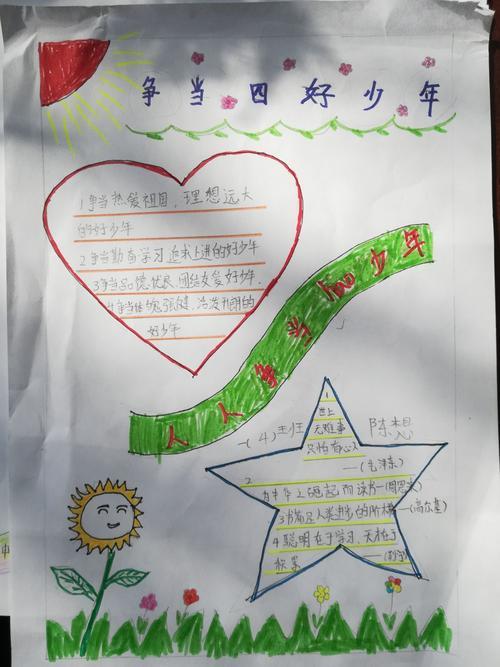 争当四好少年
1争当热爱祖国，理想远大
的好少年
2争当勤奋学习，追求上进的好少年
3争当品德优良，团结友爱好少年.
4争当体魄强健，活泼开朗的
好少年
人人争当 four 少年
一(4)王班
陈想
1
世上
无难事
只怕有心人
——(毛泽东)
2
为中华之崛起而读书—(周恩来)
3书籍是人类进步的阶梯—(高尔基)
4聪明在于学习，天才在于
积累
——(列宁)